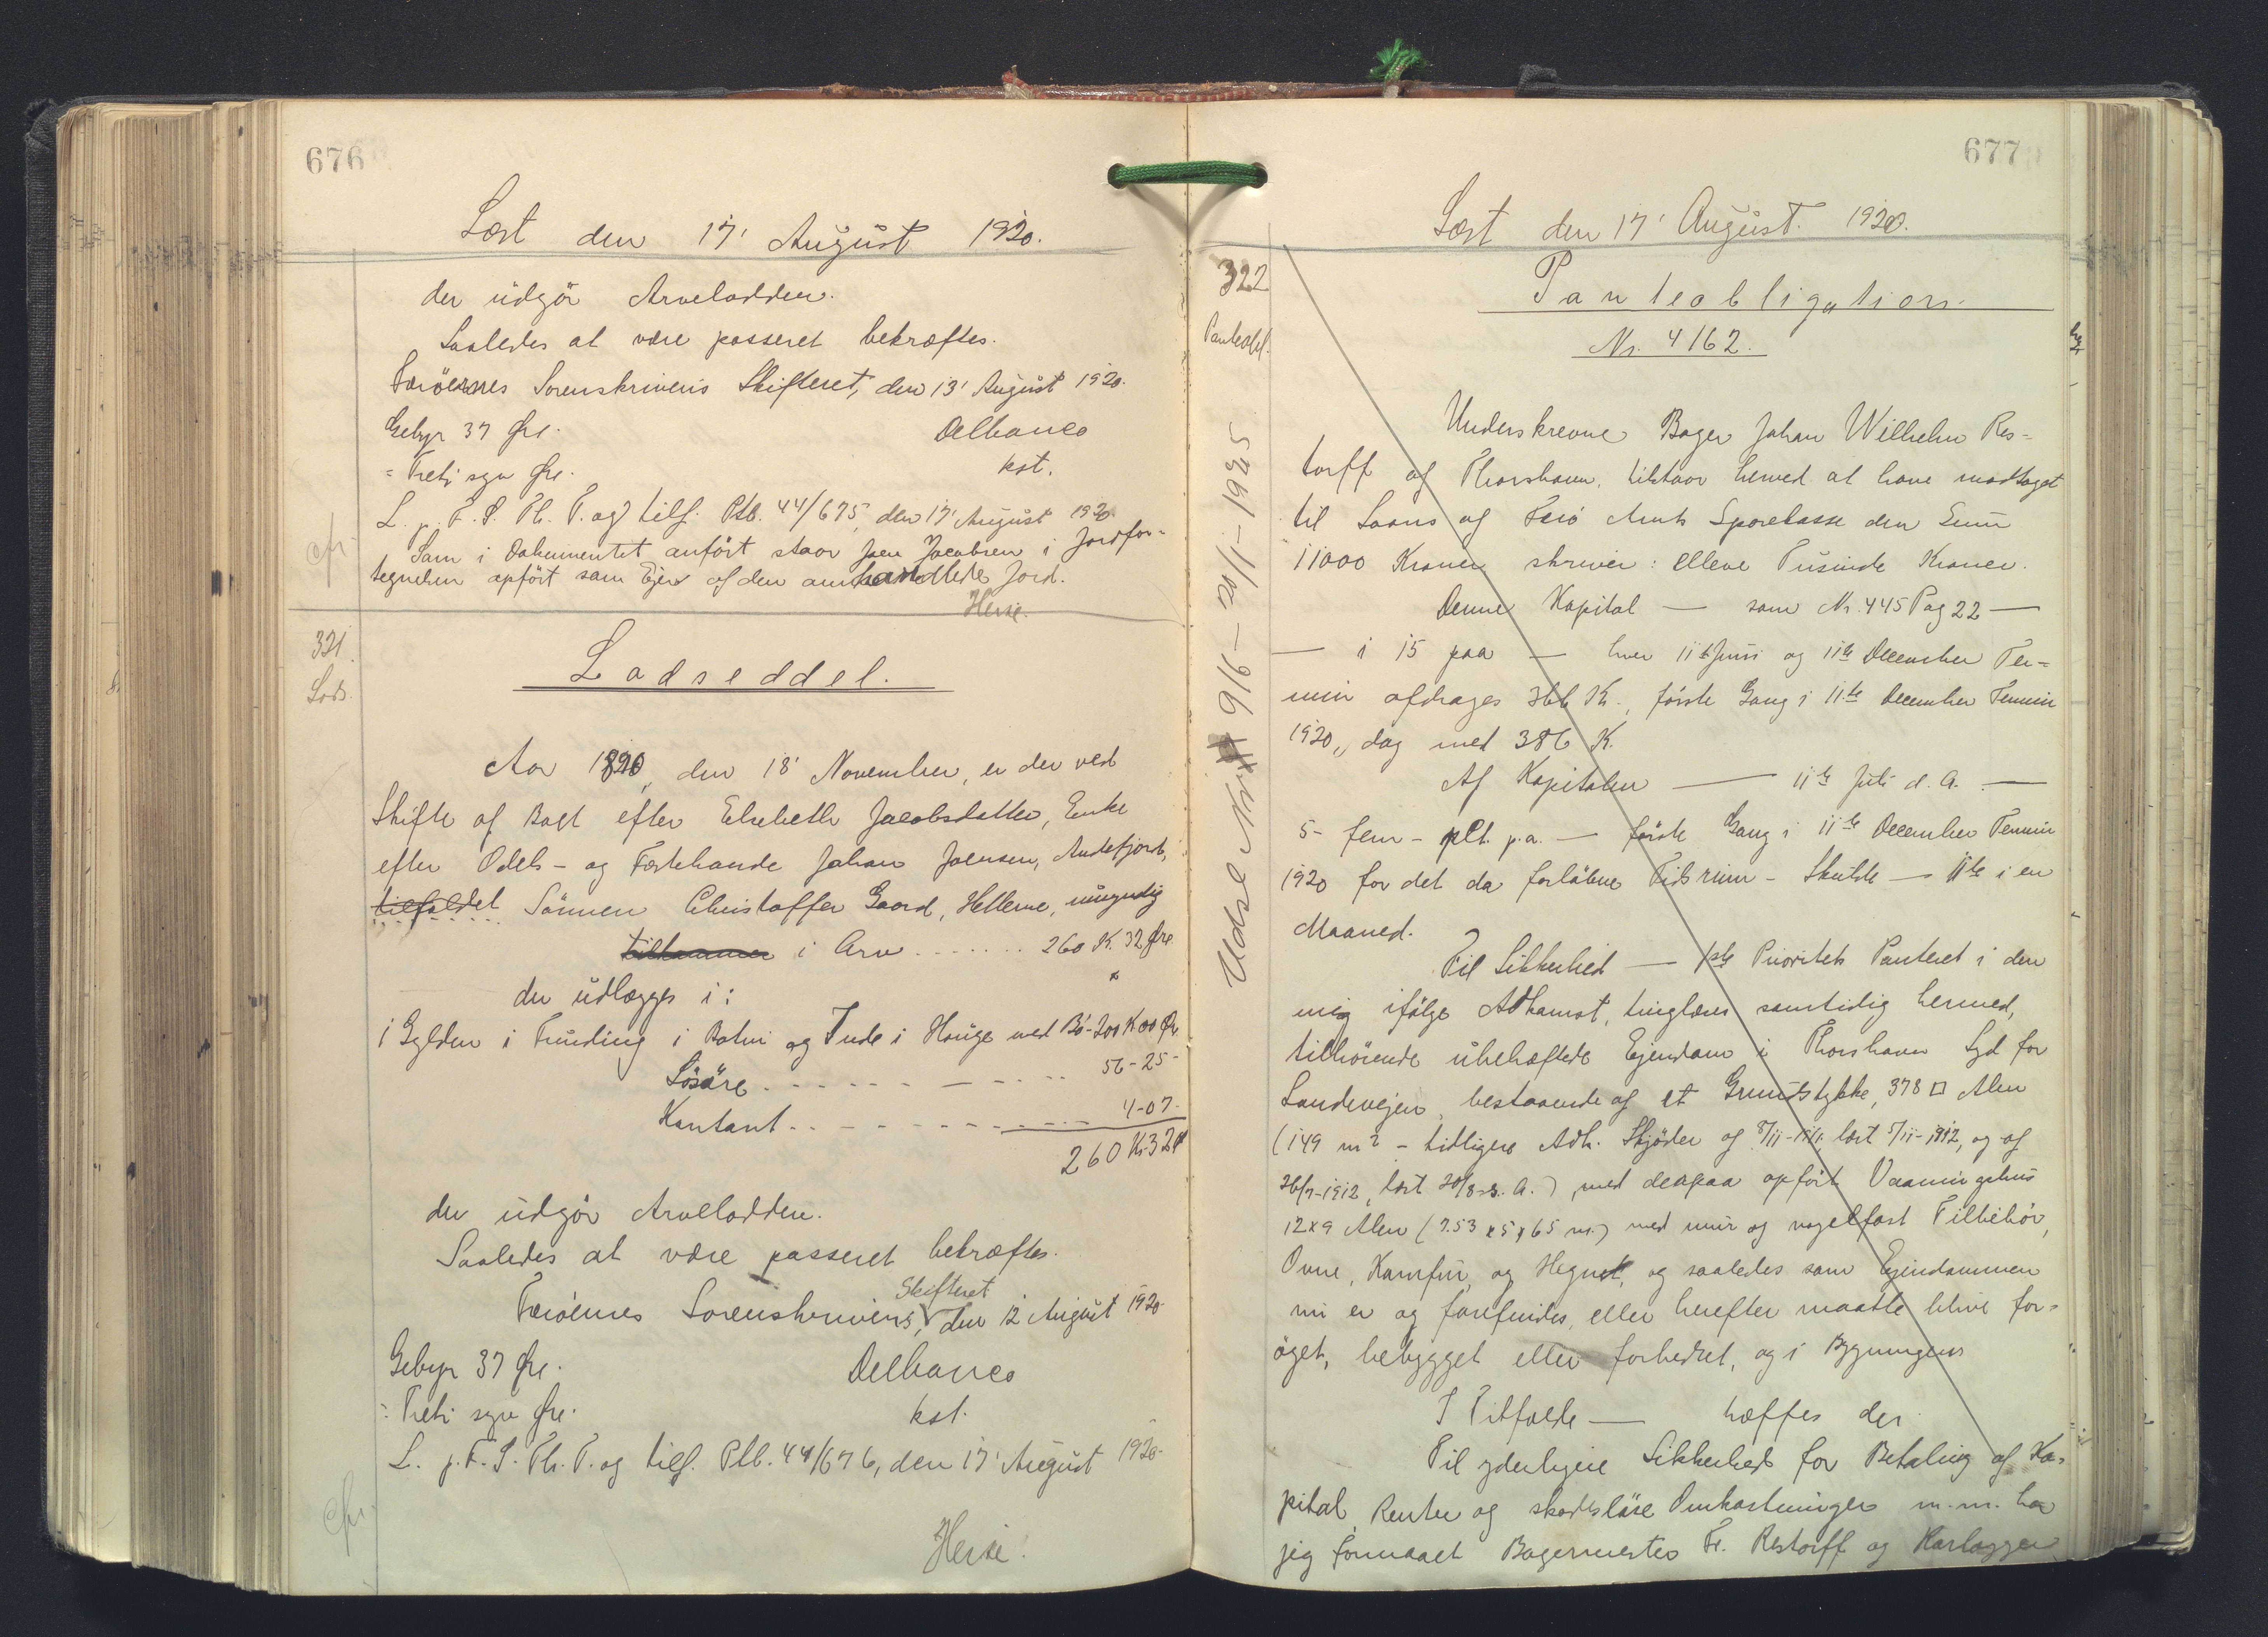 676
Læst den 17' August 1920.
der udgør Arvelodden.
Saaledes at være passeret bekræftes.
Færøernes Sorenskriveris Skifteret, den 13' August 1920.
Gebyr 37 Øre. Delbanco
= Treti syv Øre. kst.
L. p. F. S. Th. T. og tilf. Ptb. 44/675, den 17' August 1920.
cfr. Som i Dokumentet anført staar Joen Jacobsen i Jordfor=
tegnelsen opført som Ejer af den omhandlede Jord.
Heise.
321.
Lods.
Lodseddel.
Aar 1890, den 18' November, er der ved
Skifte af Boet efter Elsebeth Jacobsdatter, Enke
efter Odels- og Festebonde Johan Joensen, Andefjord,
tilfaldet Sønnen Christoffer Gaard, Hellerne, umyndig
i Arv ...... 260 K. 32 Øre
der udlægges i:
1 Gylden i Funding i Botni og Inde i Houge med Bö - 200 K 00 Øre
Løsøre - - - - - - 56 - 25 -
Kontant - - - - - - 4 - 07 -
260 K. 32 Ø
der udgør Arvelodden.
Saaledes at være passeret bekræftes.
Færøernes Sorenskriveris Skifteret, den 12 August 1920.
Gebyr 37 Øre. Delbanco
= Treti syv Øre. kst.
L. p. F. S. Th. T. og tilf. Ptb. 44/676, den 17' August 1920.
cfr.
Heise.
677
Læst den 17' August. 1920.
322
Panteobl.
Panteobligation.
Nr. 4162.
Underskrevne Bager Johan Wilhelm Res=
torff af Thorshavn, tilstaar herved at have modtaget
til Laans af Færø Amts Sparekasse den Sum
11000 Kroner skriver: elleve Tusinde Kroner.
Denne Kapital — som Nr. 445 Pag 22 —
— i 15 paa — hver 11te Juni og 11te December Ter=
min afdrages 366 Kr., første Gang i 11te December Termin
1920, dog med 386 K.
Af Kapitalen — 11te Juli d. A. —
5 - fem - pCt. p.a. — første Gang i 11te December Termin
1920 for det da forløbne Tidsrum - Skulde — 11te i en
Maaned.
Til Sikkerhed — 1ste Prioritets Panteret i den
mig ifølge Adkomst, tinglæst samtidig hermed,
tilhørende ubehæftede Ejendom i Thorshavn Syd for
Landevejen, bestaaende af et Grundstykke, 378 □ Alen
(149 m² - tidligere Adk. Skjøder af læst 5/11-1912, og af
26/7-1912, læst 20/8 s. A.), med derpaa opført Vaaningshus
12x9 Alen (7.53 x 5,65 m.) med mur og nagelfast Tilbehør,
Ovne, Komfur, og Hegnet, og saaledes som Ejendommen
nu er og forefindes, eller herefter maatte blive for=
øget, bebygget eller forbedret, og i Bygningens
I Tilfælde — hæftes der
Til yderligere Sikkerhed for Betaling af Ka=
pital, Renter og skadesløse Omkostninger m.m. har
jeg formaaet Bagermester Fr. Restorff og
9/6 - 20/1 - 1925